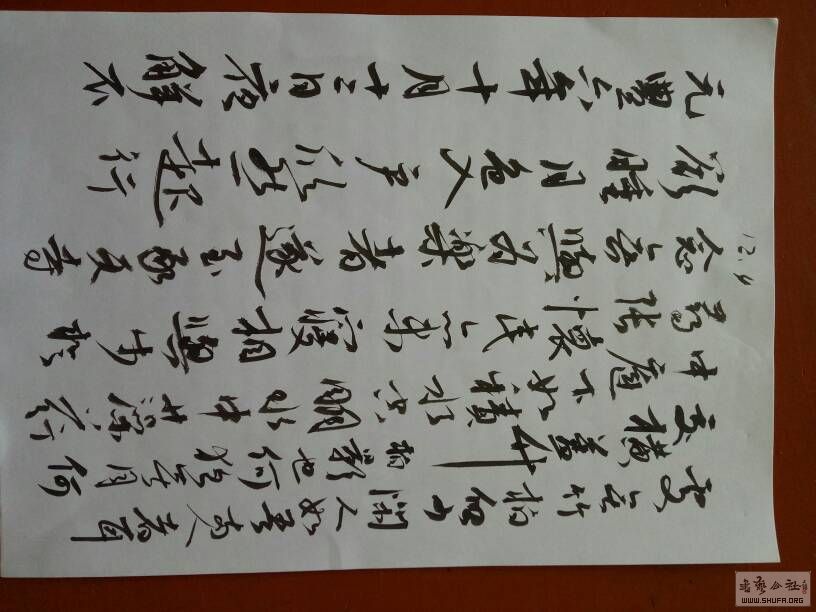 元豐六年十月十二日夜解衣
欲睡月色入户欣然起行
念无与为樂者遂至承天寺
尋張懷民亦未寢相與步於
中庭庭下如積水空明水中藻荇
交横蓋竹柏影也何夜无月何
處无竹柏但少閒人如吾两人者耳
12.4
書藝公社
WWW.SHUFA.ORG